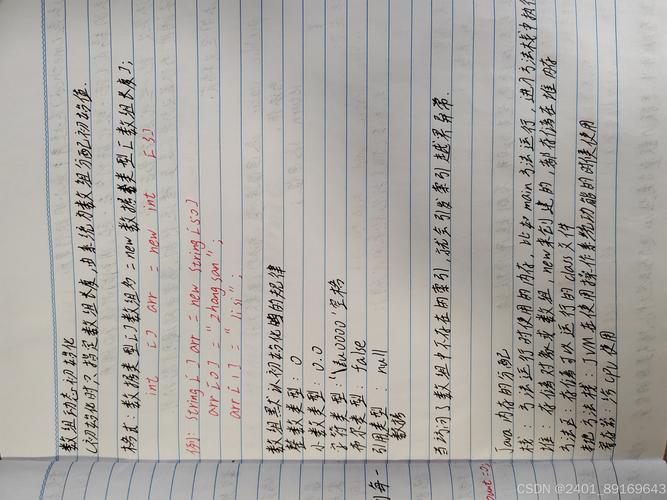 数组动态初始化
(初始化时只指定数组长度,由系统为数组分配初始值.
格式: 数据类型[]数组名 = new 数据类型[数组长度];
int [] arr = new int [3]
例: String[] arr = new String[50]
arr[0] = "zhangsan";
arr[1] = "lisi";
数组默认初始化的规律
整数类型: 0
小数类型: 0.0
字符类型: '\u0000'空格
布尔类型: false
引用类型: null
数据
当访问了数组中不存在的索引,就会引发索引越界异常.
Java内存的分配
栈: 方法运行时使用的内存,比如main方法运行,进入方法栈中执行
堆: 存储对象或数组,new来创建的,都存储在堆内存
方法区: 存储可以运行的class文件
本地方法栈: JVM在使用操作系统功能的时候使用
寄存器: 给CPU使用
CSDN @2401_89169643